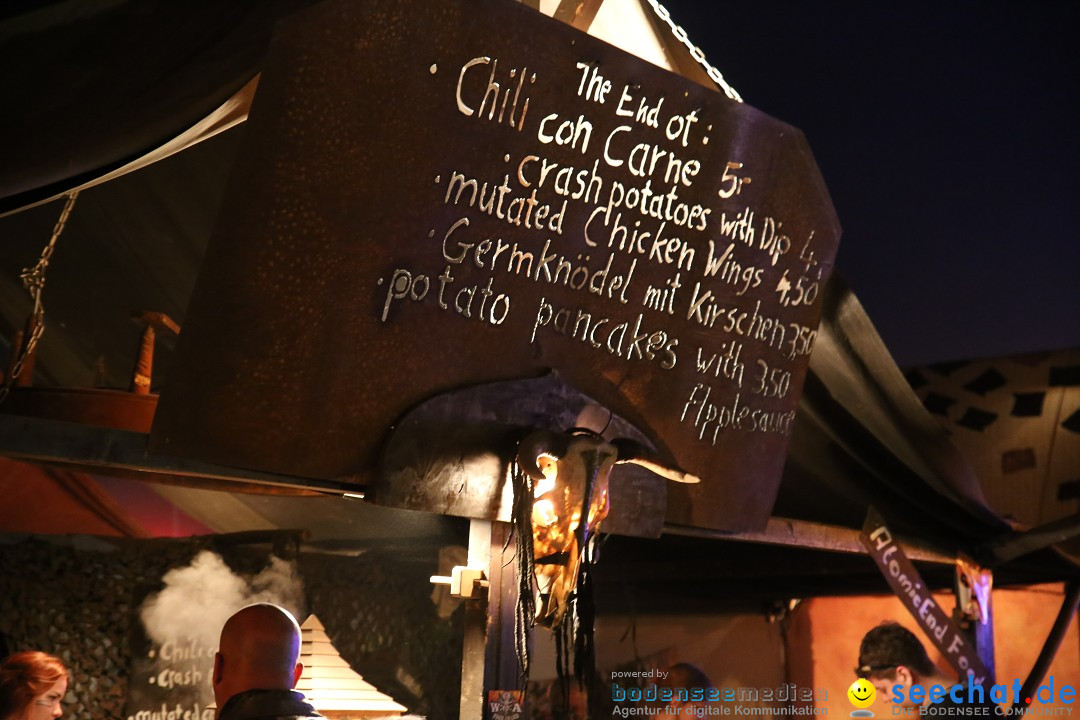 The End of:
• Chili con Carne 5,-
• Crash potatoes with Dip 4,-
• mutated Chicken Wings 4,50
• Germknödel mit Kirschen 3,50
• potato pancakes with 3,50
Applesauce
• Chili
• Crash
• mutated
AtomicEnd Food
powered by
bodenseemedien
Agentur für digitale Kommunikation
seechat.de
Die Bodensee Community